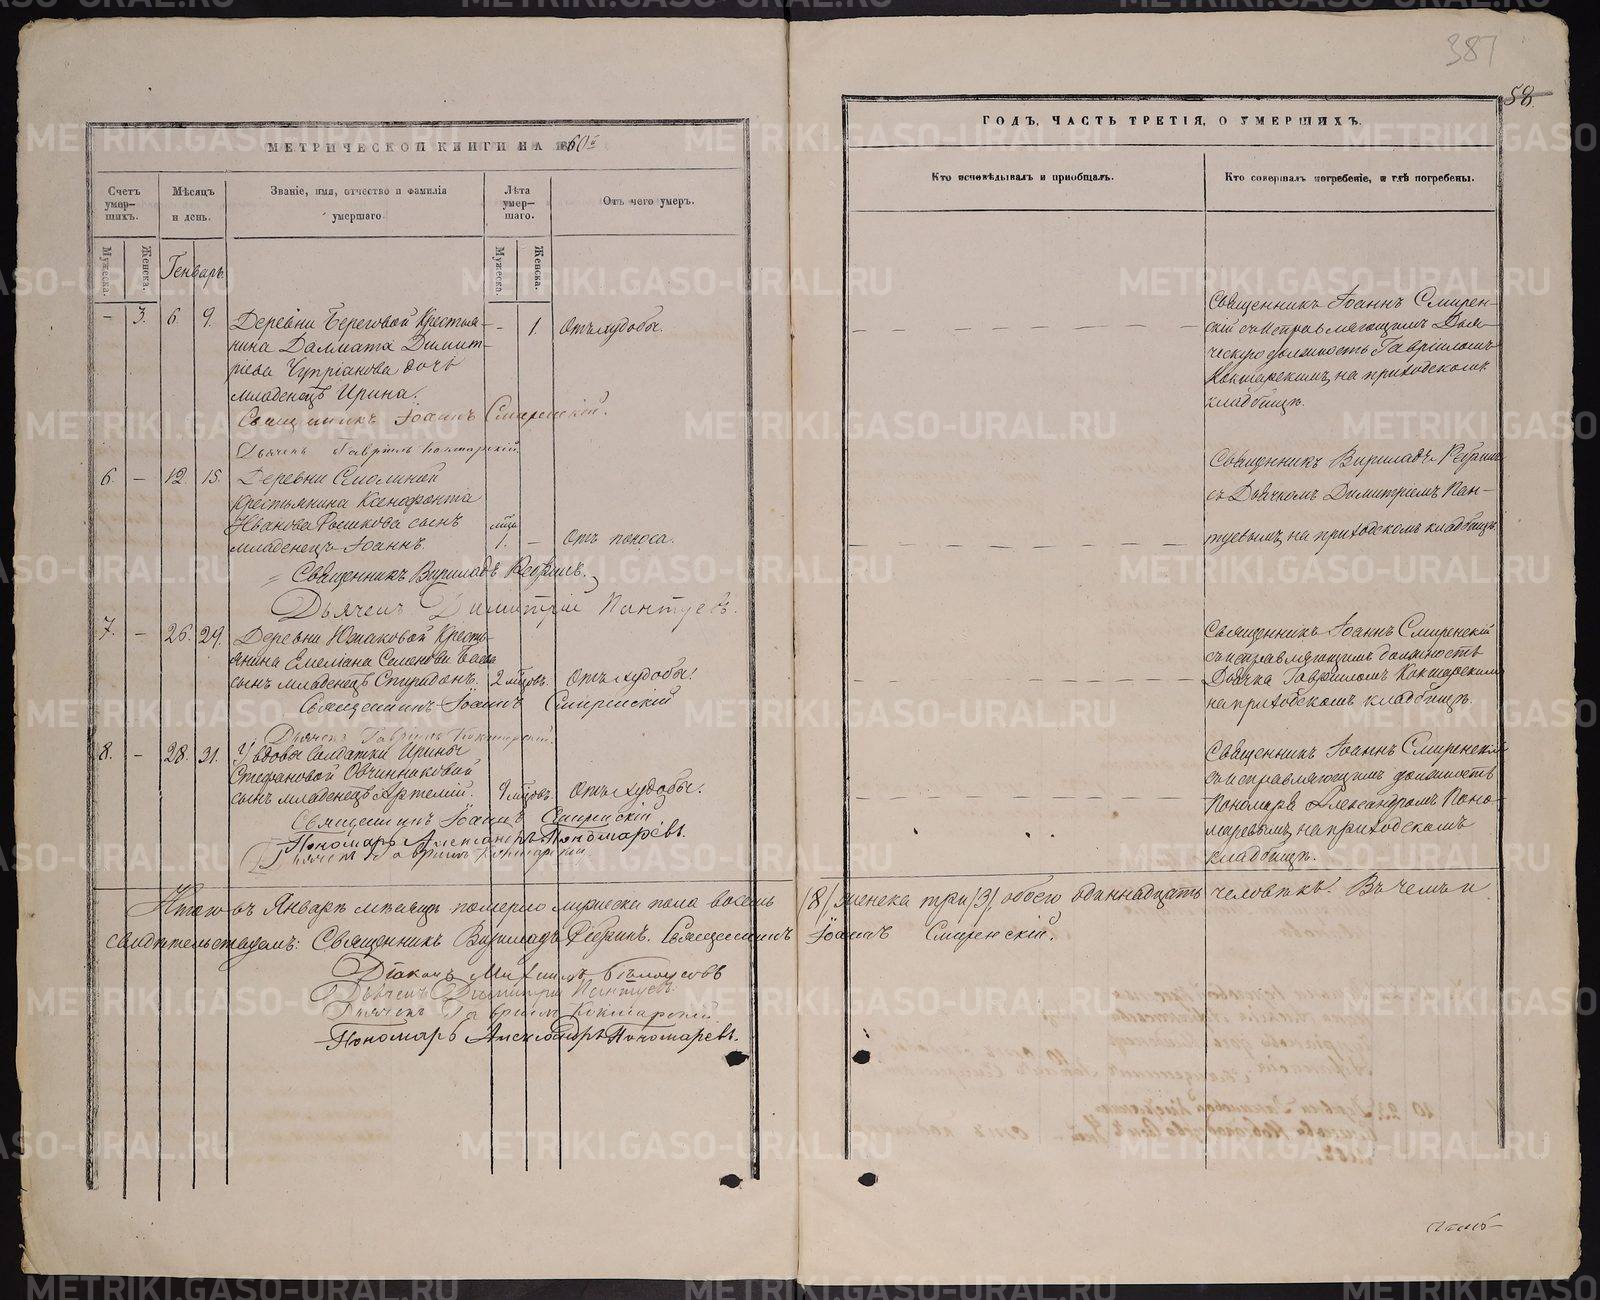 387
58.
МЕТРИЧЕСКОЙ КНИГИ НА 1860й
ГОДЪ, ЧАСТЬ ТРЕТІЯ, О УМЕРШИХЪ.
Счетъ умер-шихъ.
Мѣсяцъ и день.
Званіе, имя, отчество и фамилія умершаго
Лѣта умер-шаго.
Отъ чего умеръ.
Кто исповѣдывалъ и пріобщалъ.
Кто совершалъ погребеніе, и гдѣ погребены.
Мужеска.
Женска.
Генварь
Мужеска.
Женска.
– 3. 6. 9. Деревни Береговой Крестья- – 1. Отъ худобы.
нина Далмата Димит-
ріева Чупріанова дочь
младенецъ Ирина.
Священникъ Іоаннъ Смиренскій.
Дьячекъ Гавріилъ Кокшарскій
Священникъ Іоаннъ Смирен-
скій съ исправляющимъ Дья-
ческую должность Гавріиломъ
Кокшарскимъ, на приходскомъ
кладбищѣ.
6. – 12. 15. Деревни Смолиной
крестьянина Ксенофонта
Иванова сынъ мцъ
младенецъ Іоаннъ. 1. – Отъ поноса.
Священникъ
Дьячекъ Димитрій Пантуевъ.
Священникъ
съ Дьячкомъ Димитріемъ Пан-
туевымъ, на приходскомъ кладбищѣ.
7. – 26. 29. Деревни Южаковой Кресть-
янина Емеліана Семенова
сынъ младенецъ Спиридонъ. 2 мцовъ. Отъ худобы.
Священникъ Іоаннъ Смиренскій
Дьячекъ Гавріилъ Кокшарскій.
Священникъ Іоаннъ Смиренскій
съ исправляющимъ должность
Дьячка Гавріиломъ Кокшарскимъ
на приходскомъ кладбищѣ.
8. – 28. 31. У вдовы Солдатки Ирины
Стефановой Овчинниковой
сынъ младенецъ Артемій. 9 мцовъ Отъ худобы.
Священникъ Іоаннъ Смиренскій
Пономарь Александръ Пономаревъ.
Дьячекъ Гавріилъ Кокшарскій
Священникъ Іоаннъ Смиренскій
съ исправляющимъ должность
Пономаря Александромъ Поно-
маревымъ, на приходскомъ
кладбищѣ.
Итого въ Январѣ мѣсяцѣ померло мужеска пола восемь (8) женска три (3), обоего одиннадцать человѣкъ. Въ чемъ и
свидѣтельствуемъ: Священникъ Священникъ Іоаннъ Смиренскій.
Діаконъ Михаилъ
Дьячекъ Димитрій Пантуевъ.
Дьячекъ Гавріилъ Кокшарскій.
Пономарь Александръ Пономаревъ.
METRIKI.GASO-URAL.RU